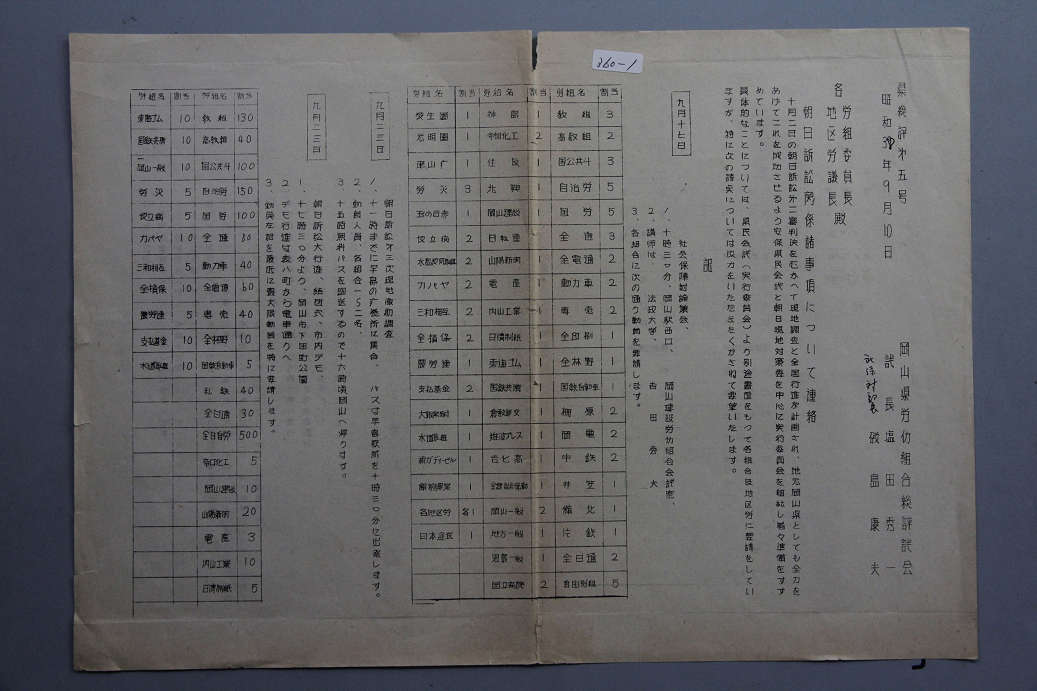 360-1
県総評第五号
昭和38年9月10日
岡山県労仂組合総評議会
議長 塩田秀一
砂島康夫
各 労組委員長
地区労議長 殿
朝日訴訟関係諸事項について連絡
十月二日の朝日訴訟第二審判決をむかへて現地調査と全国行進が計画され、地元岡山県としても全力を
あげてこれを成功させるよう安保県民会議と朝日現地対策委を中心に実行委員会を組織し着々準備をすす
めています。
具体的なことについては、県民会議(実行委員会)より別途書面をもって各組合及地区労に要請をしてい
ますが、特に次の諸点については御協力をいただきたくかさねて要望いたします。
記
九月十七日
社会保障討論集会、
1、十時三〇分、岡山駅西口、岡山建設労仂組合会議室
2、講師は、法政大学、吉田秀夫
3、各組合に次の通り動員を要請します。
労組名 割当 労組名 割当 労組名 割当
教組 3
高教組 2
国公共斗 3
自治労 5
国労 5
全逓 3
全電通 2
動力車 2
専売 2
全印刷 1
全林野 1
国鉄自動車 1
棚原 2
岡電 2
中鉄 2
井笠 1
備北 1
片鉄 1
全日通 2
全日自労 5
林部 1
令和化工 2
住友 1
北興 1
岡山建設 1
日転産 1
山陽新聞 1
電産 1
内山工業 1
日清製紙 1
東進ゴム 1
国鉄共済 1
岡山一般 2
地方一般 1
児島一般 1
国立病院 2
愛生園 1
光明園 1
労災 3
玉の日赤 1
国立病 2
カバヤ 2
三和相互 2
全損保 2
農労連 1
支払基金 2
水道局 1
各地区労 各1
九月二三日
朝日訴訟第三次現地激励調査
1、十一時までに早島の療養所に集合、バスは早島役所を十時三〇分に出発します。
2、動員人員、各組合一〜二名、
3、十五時無料バスを御送するので十六時頃岡山へ帰ります。
九月二三日
朝日訴訟大行進、総決起、市内デモ、
1、十七時三〇分より、岡山市下石井公園
2、デモ行進は表八町から電車通りへ
3、動員左記を最低に最大限動員を特に要請します。
労組名 割当 労組名 割当
教組 130
高教組 40
国公共斗 100
自治労 150
国労 100
全逓 80
動力車 40
全電通 60
専売 40
全林野 10
国鉄自動車 5
私鉄 40
全日通 30
全日自労 500
令和化工 5
岡山建設 10
山陽新聞 20
電産 3
内山工業 10
日清製紙 5
東進ゴム 10
国鉄共済 10
岡山一般 10
労災 5
国立病 5
カバヤ 10
三和相互 5
全損保 10
農労連 5
支払基金 10
水道局 10